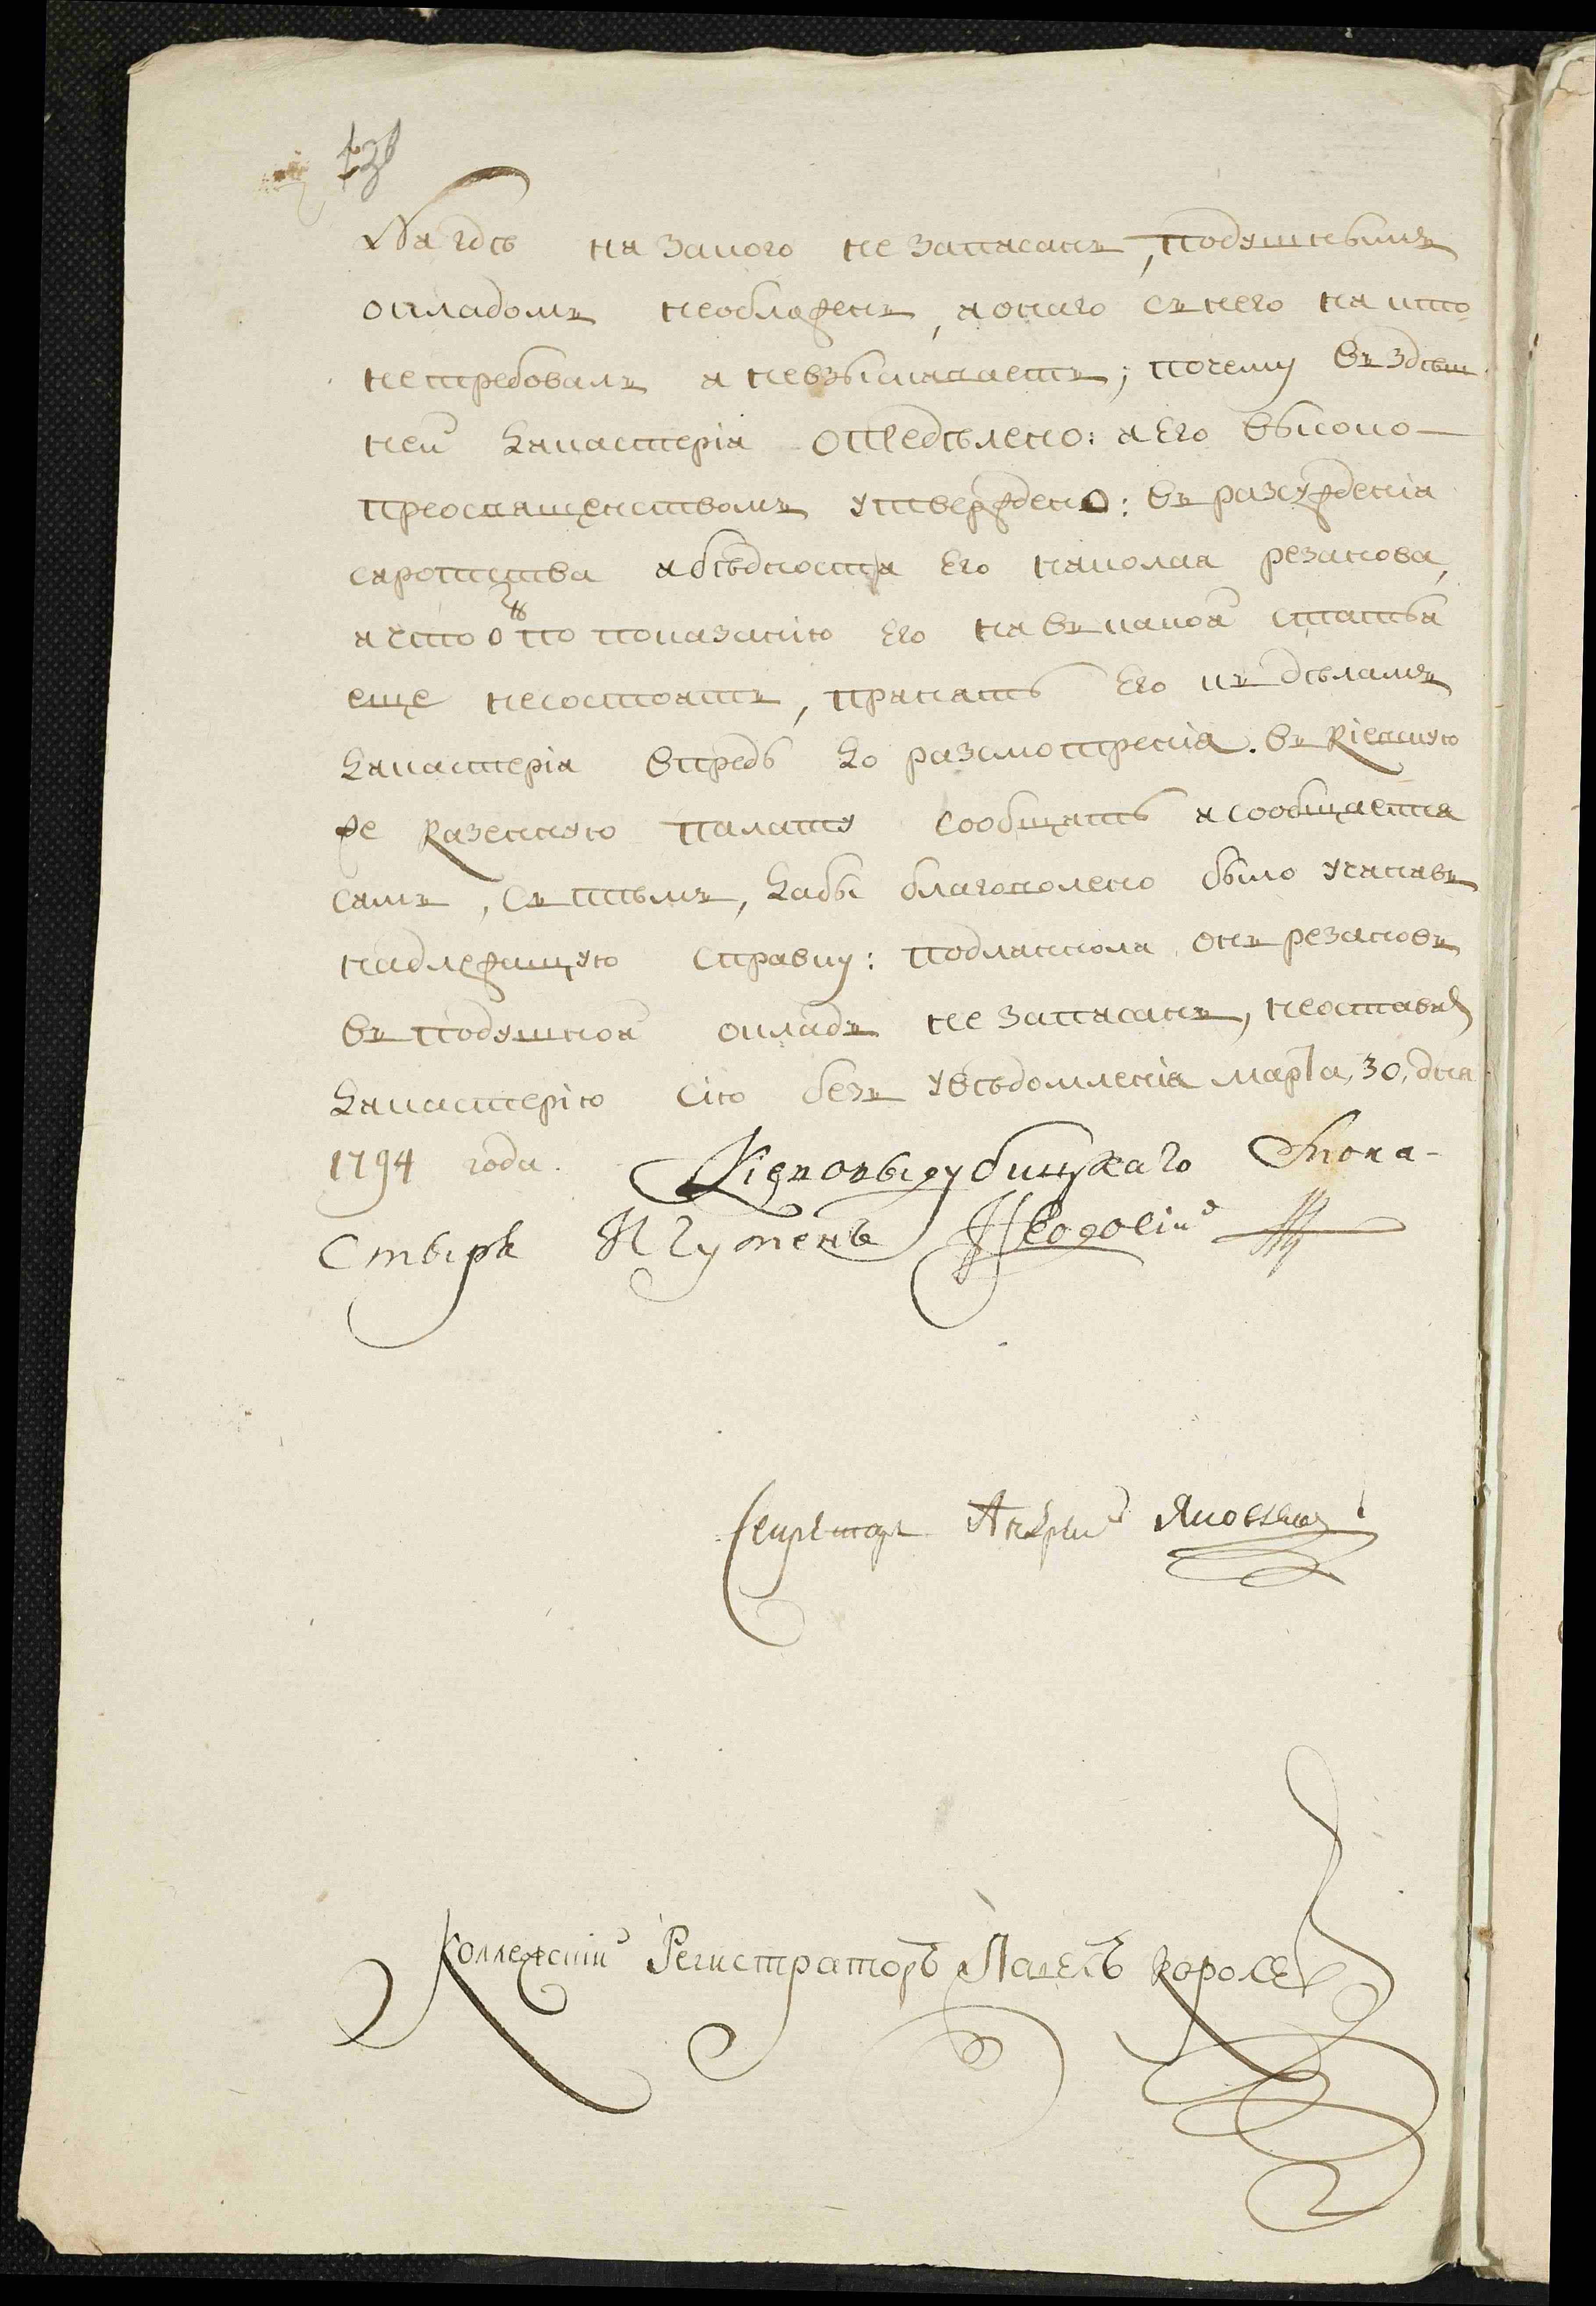 Нигдѣ низакого незаписанъ, подушнымъ
окладомъ необложенъ, ионаго снего никто
нетребовалъ и невзыскиваетъ; почему въздѣш
ней Дикастеріи опредѣлено: и Его высоко-
преосвященствомъ утверждено: въ разсужденіи
сиротства и бѣдности Его николая резанова,
ичто онъ по показанію Его нивкакой статьи
еще несостоитъ, принять Его къ дѣламъ
Дикастеріи впредь до разсмотренія. въ Кіевскую
же Казенную палату сообщить исообщается
симъ, стѣмъ, дабы благоволено было учинивъ
надлежащую справку: подлинноли онъ резановъ
въ подушной окладъ не записанъ, неоставить
Дикастерію сію безъ увѣдомленія марта, 30, дня
1794 года. Кіевовыдубицкаго Мона-
стыря Игуменъ Ѳеодосій
Секретарь Андрей Яковскій
Коллежскій Регистраторъ Павелъ Королев